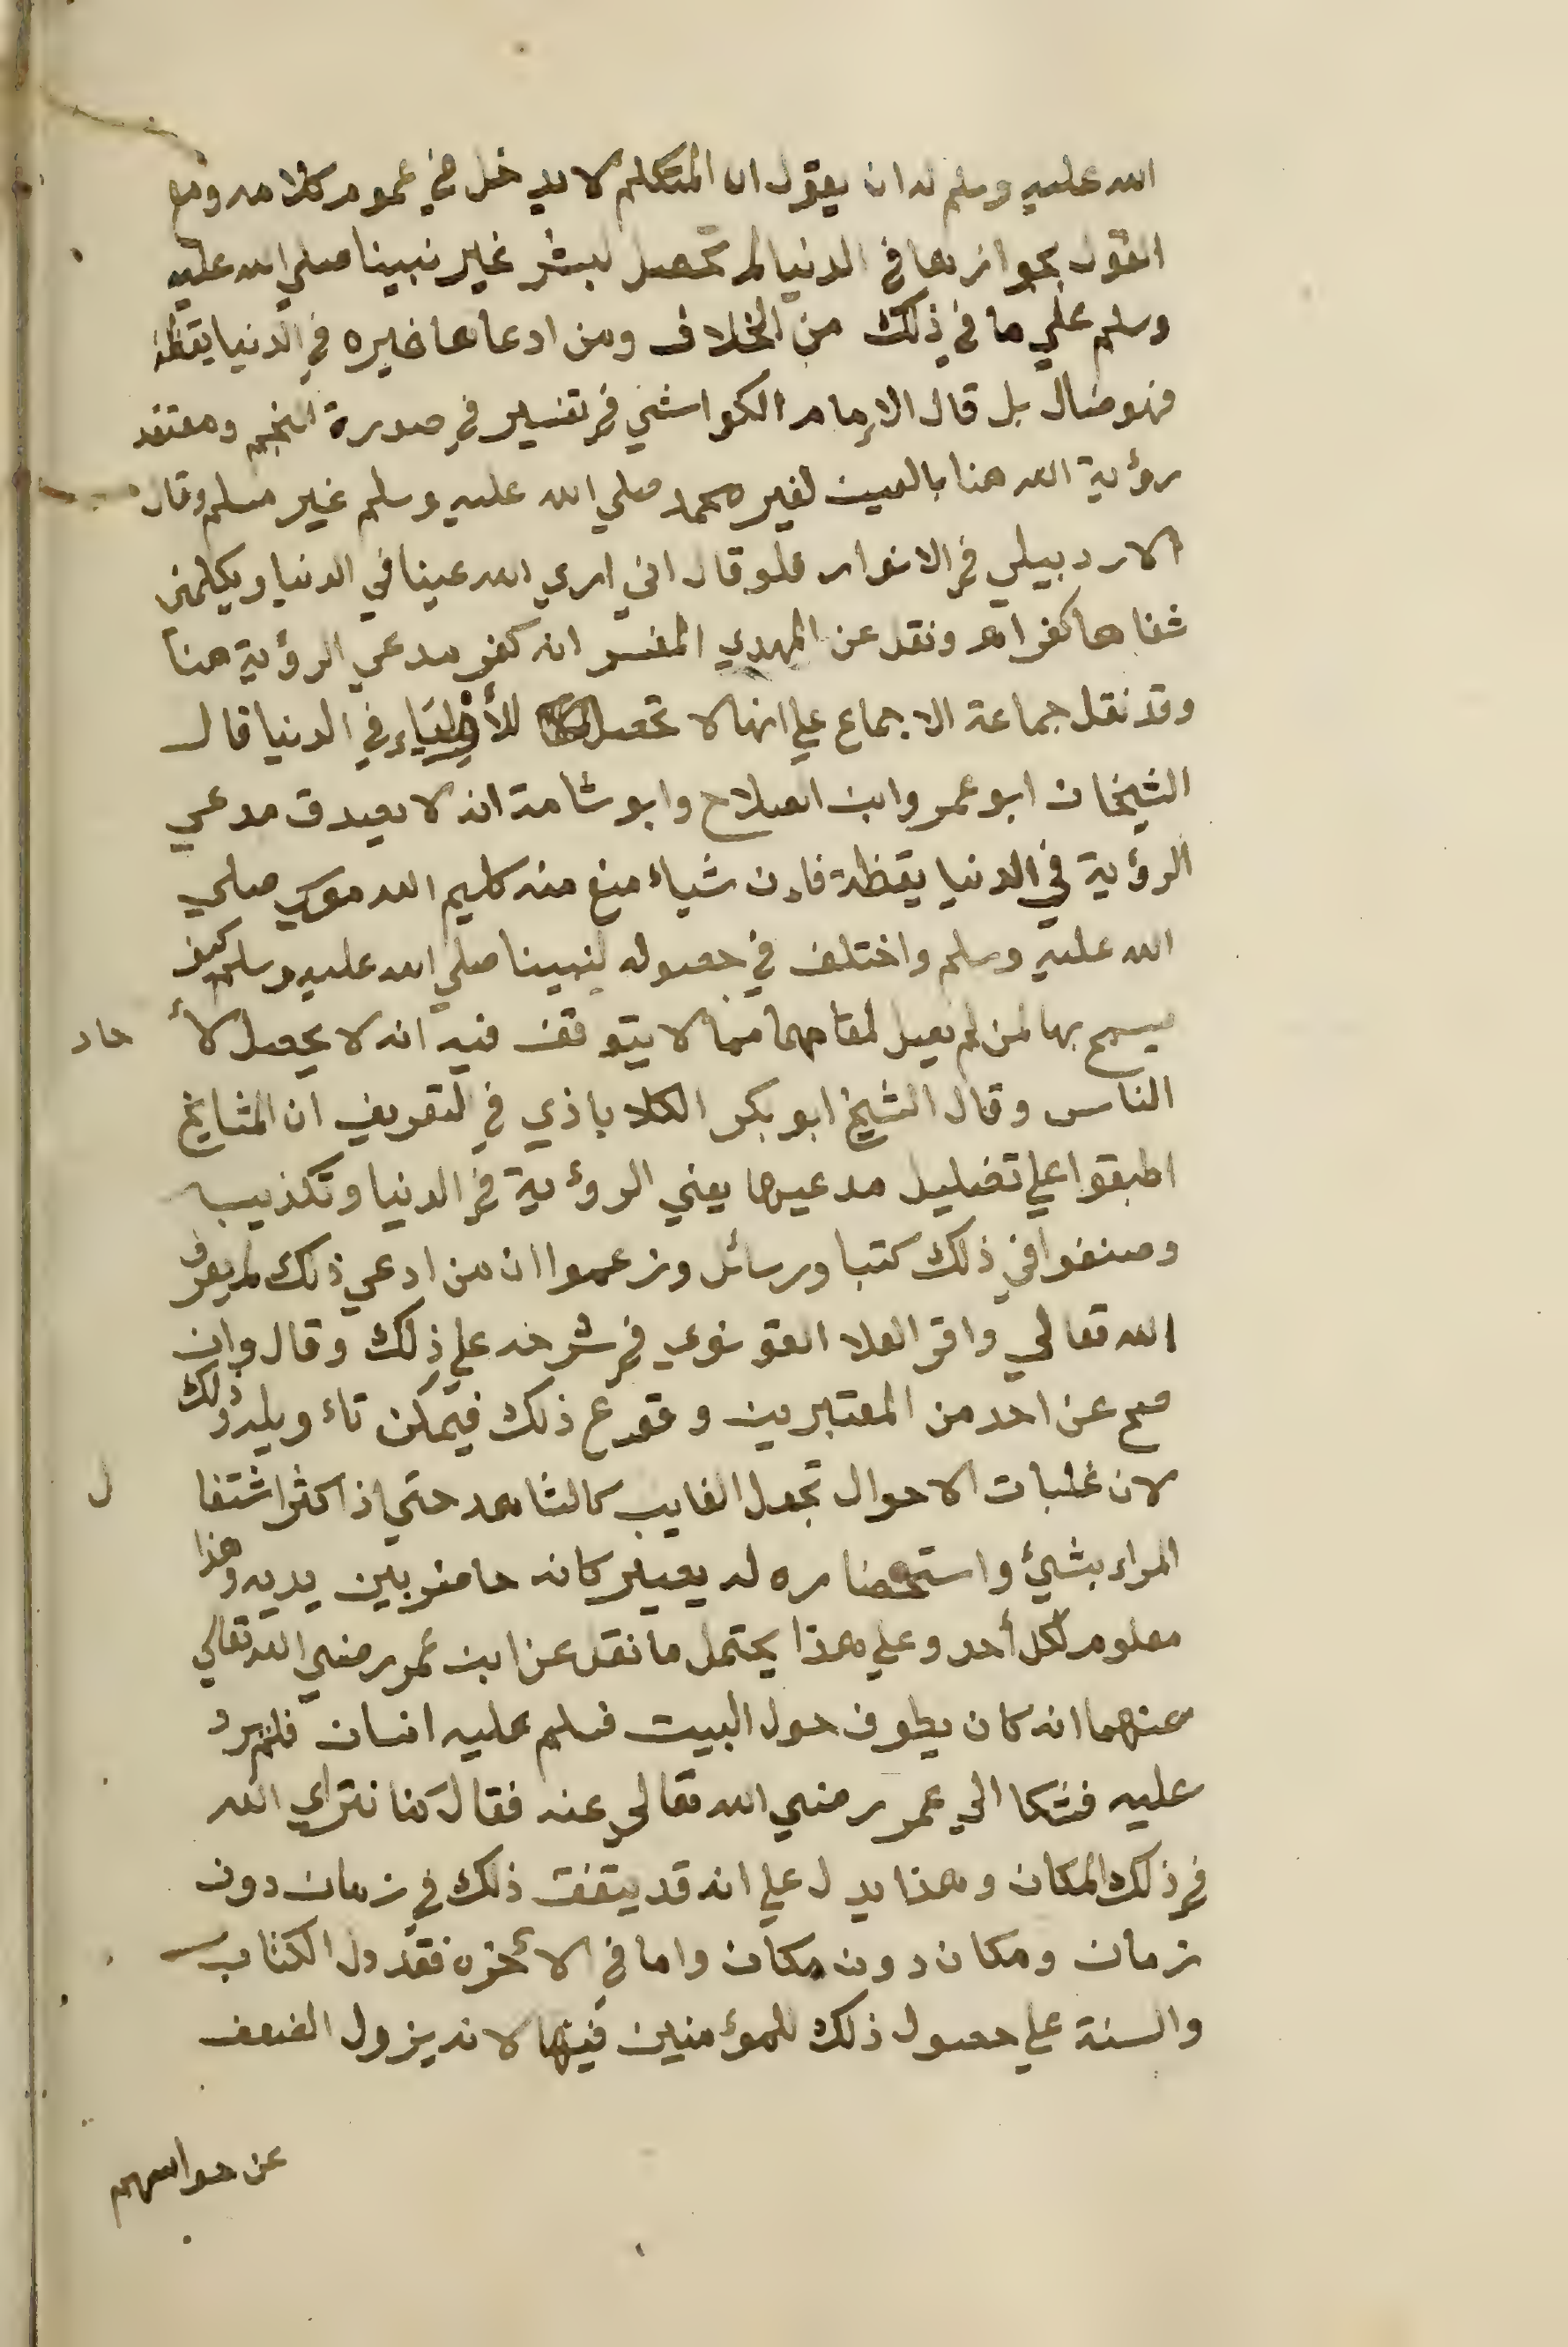 الله عليه وسلم له ان يقول ان المتكلم لا يدخل في عموم كلامه ومع
القول بجوازها في الدنيا لم تحصل لبشر غير نبينا صلي الله عليه
وسلم علي ما في ذلك من الخلاف ومن ادعاها غيره في الدنيا يقظة
فهو ضال بل قال الإمام الكواشي في تفسير في صورة النجم ومعتقد
رؤية الله هنا بالعين لغير محمد صلي الله عليه وسلم غير مسلم وقال
الاردبيلي في الانوار فلو قال اني اري الله عينا في الدنيا ويكلمني
شفاها كفر اه ونقل عن المهدي المفسر انه كفر مدعي الرؤية هنا
وقد نقل جماعة الاجماع علي انها لا تحصل للأولياء في الدنيا قال
الشيخان ابو عمر وابن الصلاح وابو شامة انه لا يصدق مدعي
الرؤية في الدنيا يقظة فإن شياء منع منه كليم الله موسي صلي
الله عليه وسلم واختلف في حصوله لنبينا صلي الله عليه وسلم كيف
يسمح بها لمن لم يصل لمقامهما مما لا يتوقف فيه انه لا يحصل لأ حاد
الناس وقال الشيخ ابو بكر الكلاباذي في التعريف ان المشايخ
اطبقوا علي تضليل مدعيها يعني الرؤية في الدنيا وتكذيبه
وصنفوا في ذلك كتبا ورسائل وزعموا ان من ادعي ذلك لم يعرف
الله تعالي واقر العلا القونوي في شرحه علي ذلك وقال وان
صح عن احد من المعتبرين وقوع ذلك فيمكن تاء ويله وذلك
لان غلبات الاحوال تجعل الغايب كالشاهد حتي اذا كثر اشتغا ل
المراء بشئ واستحضاره له يصير كانه حاضر بين يديه وهذا
معلوم لكل أحد وعلي هذا يحتمل ما نقل عن ابن عمر رضي الله تعالي
عنهما انه كان يطوف حول البيت فسلم عليه انسان فلم يرد
عليه فشكا الي عمر رضي الله تعالي عنه فقال كنا نتراي الله
في ذلك المكان وهذا يدل علي انه قد يتفق ذلك في زمان دون
زمان ومكان دون مكان واما في الأخره فقد دل الكتاب
والسنة علي حصول ذلك للمؤمنين فيها لانه يزول الضعف
عن حواسهم